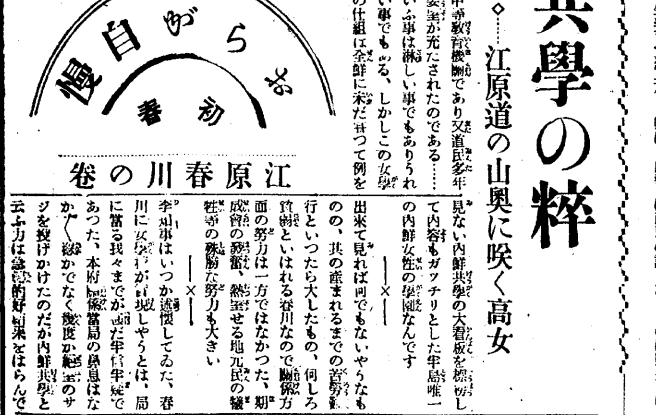 共學の粹
◇……江原道の山奥に咲く高女
中等教育機關であり又道民多年
要望が充たされたのである……
いふ事は淋しい事でもありうれ
い事でもある、しかしこの女學
の仕組は全鮮に未だ甞つて例を
見ない内鮮共學の大看板を標榜し
て内容もガッチリとした半島唯一
の内鮮女性の學園なんです
――×――
出來て見れば何でもないやうなも
のの、其の産まれるまでの苦勞
行といつたら大したもの、何しろ
貧弱といはれる春川なので關係方
面の努力は一方ではなかつた、期
成會の發奮、熱誠せる地元民の犠
牲等の殊勝な努力も大きい
――×――
李知事はいつか述懷してゐた、春
川に女學校が實現しやうとは、局
に當る我々までが未だ半信半疑で
あつた、本府關係當局の鼻息はな
か〳〵穩かでなく幾度か絶望のサ
ジを投げかけたのだが内鮮共學と
云ふ力は急速的好結果をはらんで
おらがお自慢
初春
江原春川の卷